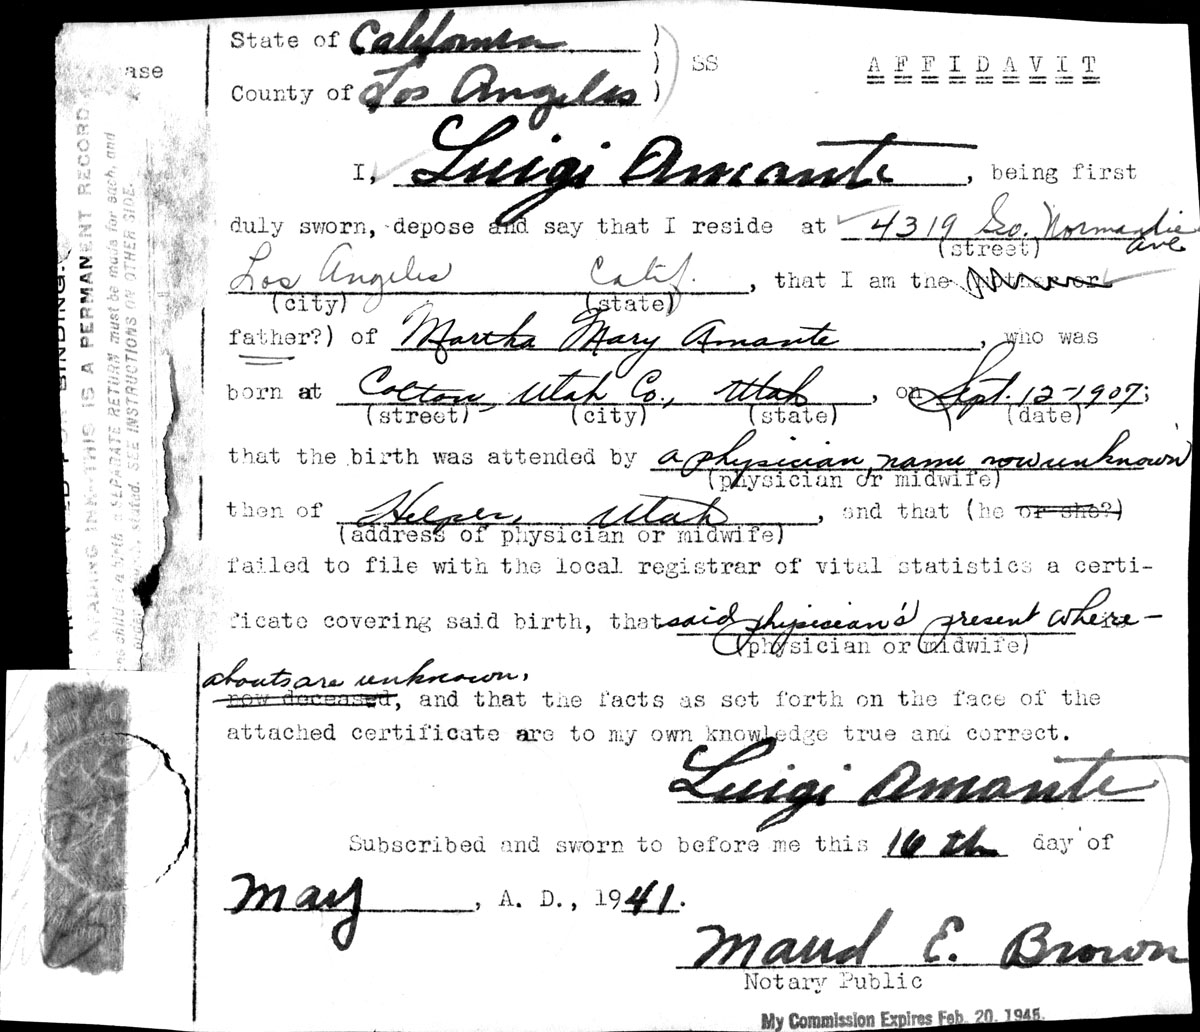 State of California )
ase ) SS AFFIDAVIT
County of Los Angeles )
I, Luigi Amante, being first
duly sworn, depose and say that I reside at 4319 So. Normandie
(street) Ave
Los Angeles Calif., that I am the (mother or
(city) (state)
father?) of Martha Mary Amante, who was
born at Colton, Utah Co., Utah, on Sept. 12-1907;
(street) (city) (state) (date)
that the birth was attended by a physician, name now unknown
(physician or midwife)
then of Helper, Utah, and that (he or she?)
(address of physician or midwife)
failed to file with the local registrar of vital statistics a certi-
ficate covering said birth, that said physician's present where-
(physician or midwife)
abouts are unknown.
now deceased, and that the facts as set forth on the face of the
attached certificate are to my own knowledge true and correct.
Luigi Amante
Subscribed and sworn to before me this 16th day of
May, A. D., 1941.
Maud E. Brown
Notary Public
My Commission Expires Feb. 20, 1945.
BINDING.
FADING INK—THIS IS A PERMANENT RECORD
a SEPARATE RETURN must be made for each, and
stated. SEE INSTRUCTIONS ON OTHER SIDE.